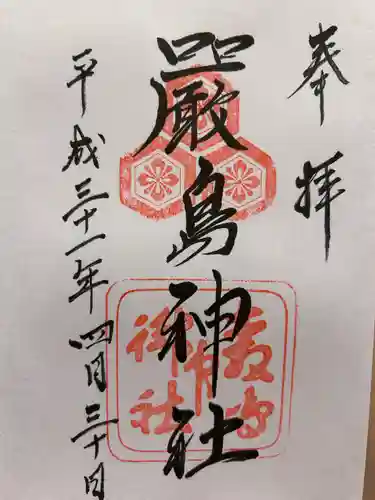 奉拝
嚴島神社
平成三十一年四月三十日